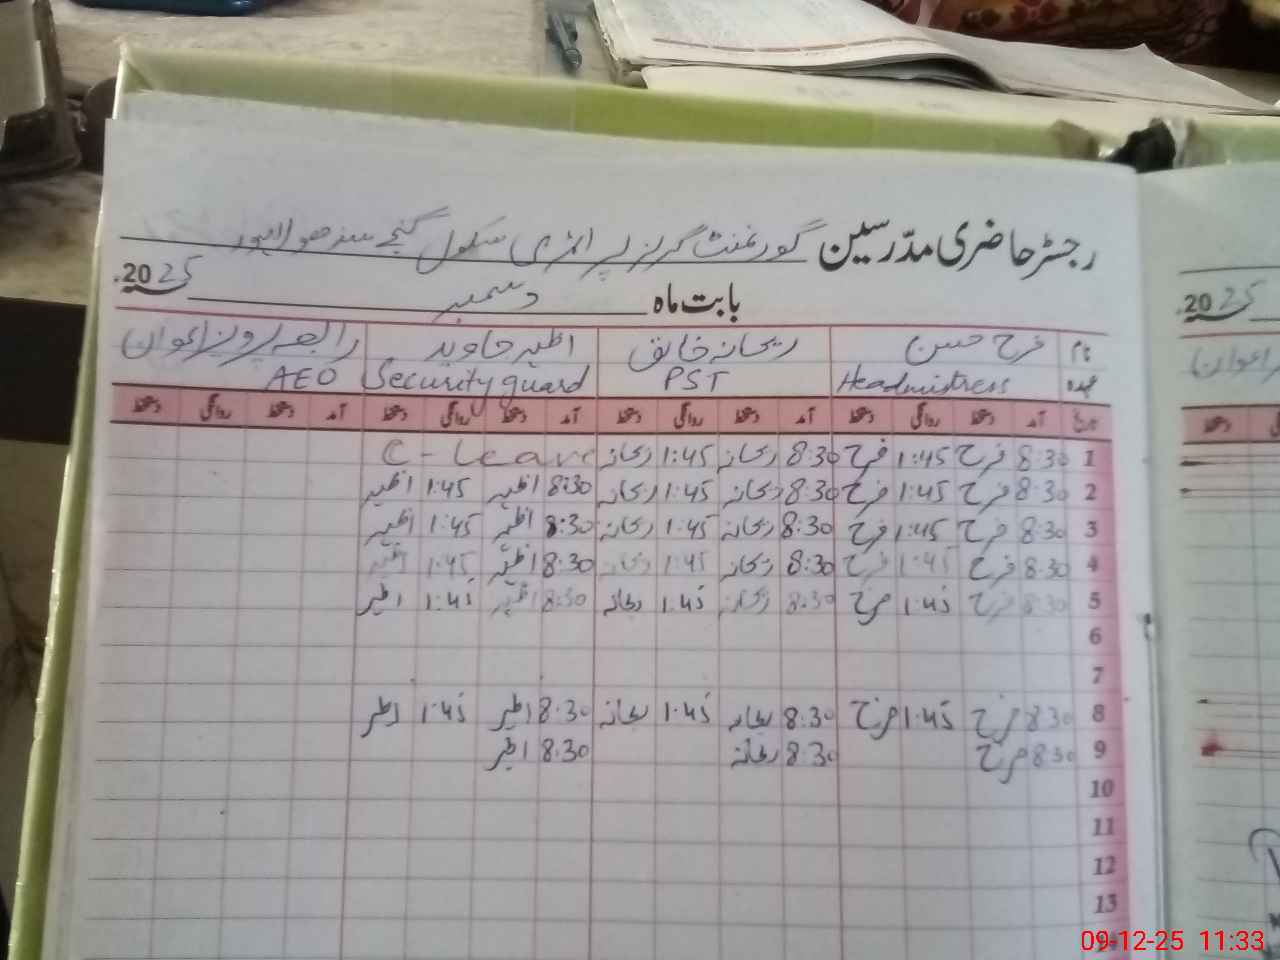 رجسٹر حاضری مدرسین گورنمنٹ گرلز پرائمری سکول گنجے سندھو لاہور
بابت ماہ دسمبر 2025ء
نام فرح حسن ریحانہ خالق اظہر جاوید رابعہ پرویز اعوان
عہدہ Headmistress PST Security guard AEO
تاریخ آمد دستخط روانگی دستخط آمد دستخط روانگی دستخط آمد دستخط روانگی دستخط آمد دستخط روانگی دستخط
1 8:30 فرح 1:45 فرح 8:30 ریحانہ 1:45 ریحانہ C-Leave
2 8:30 فرح 1:45 فرح 8:30 ریحانہ 1:45 ریحانہ 8:30 اظہر 1:45 اظہر
3 8:30 فرح 1:45 فرح 8:30 ریحانہ 1:45 ریحانہ 8:30 اظہر 1:45 اظہر
4 8:30 فرح 1:45 فرح 8:30 ریحانہ 1:45 ریحانہ 8:30 اظہر 1:45 اظہر
5 8:30 فرح 1:45 فرح 8:30 ریحانہ 1:45 ریحانہ 8:30 اظہر 1:45 اظہر
6
7
8 8:30 فرح 1:45 فرح 8:30 ریحانہ 1:45 ریحانہ 8:30 اظہر 1:45 اظہر
9 8:30 فرح 8:30 ریحانہ 8:30 اظہر
10
11
12
13
2025ء
دستخط روانگی
09-12-25 11:33